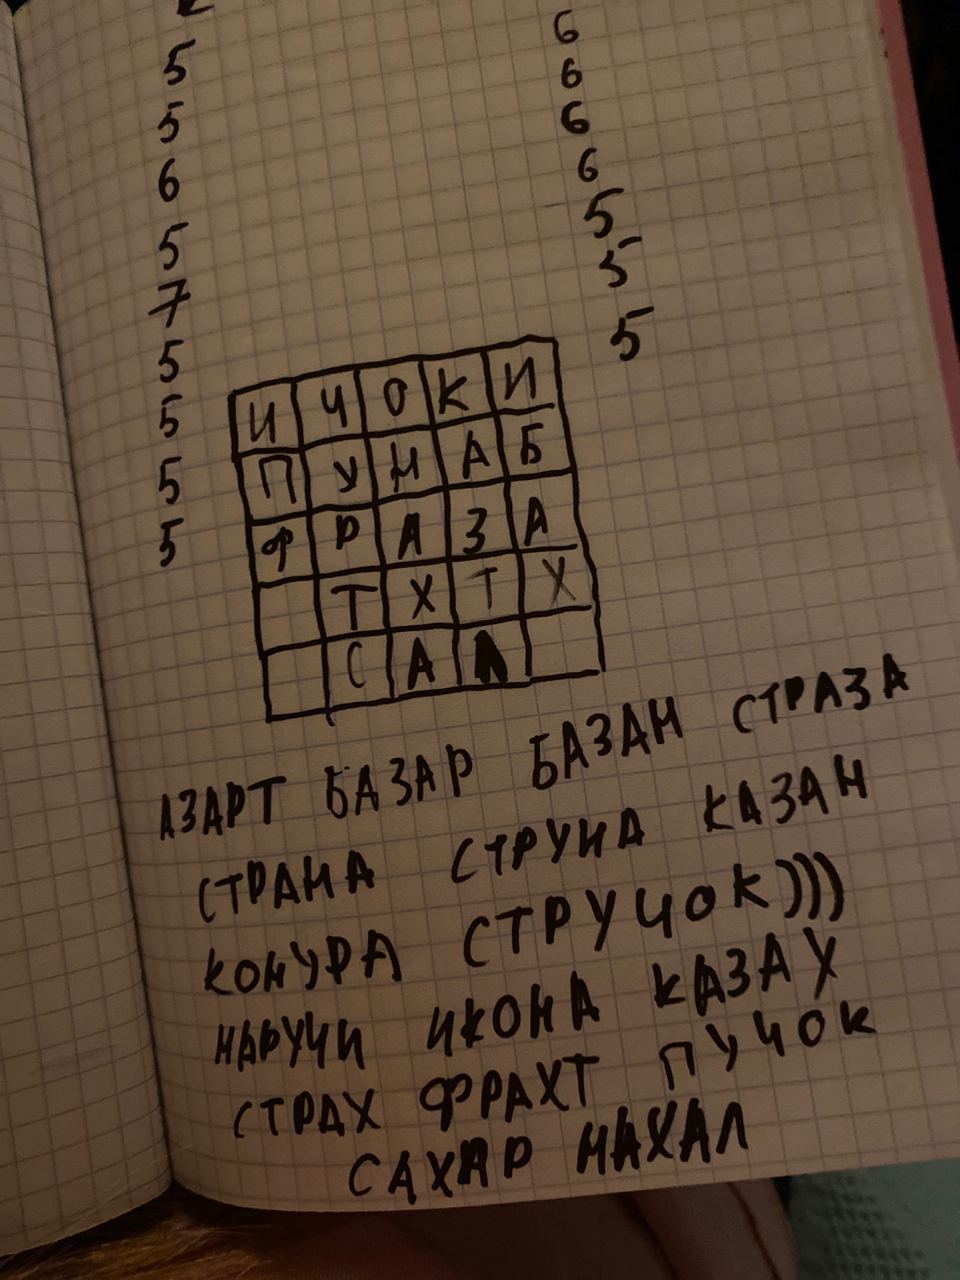 5 6
5 6
6 6
5 6
7 5
5 5
5 5
5
5
И Ч О К И
П У Н А Б
Ф Р А З А
Т Х Т Х
С А Л
АЗАРТ БАЗАР БАЗАН СТРАЗА
СТРАНА СТРУНА КАЗАН
КОНУРА СТРУЧОК)))
НАРУЧИ ИКОНА КАЗАХ
СТРАХ ФРАХТ ПУЧОК
САХАР НАХАЛ